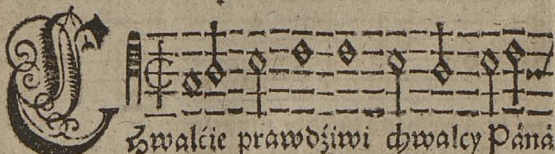 Chwalćie prawdźiwi chwalcy Páná